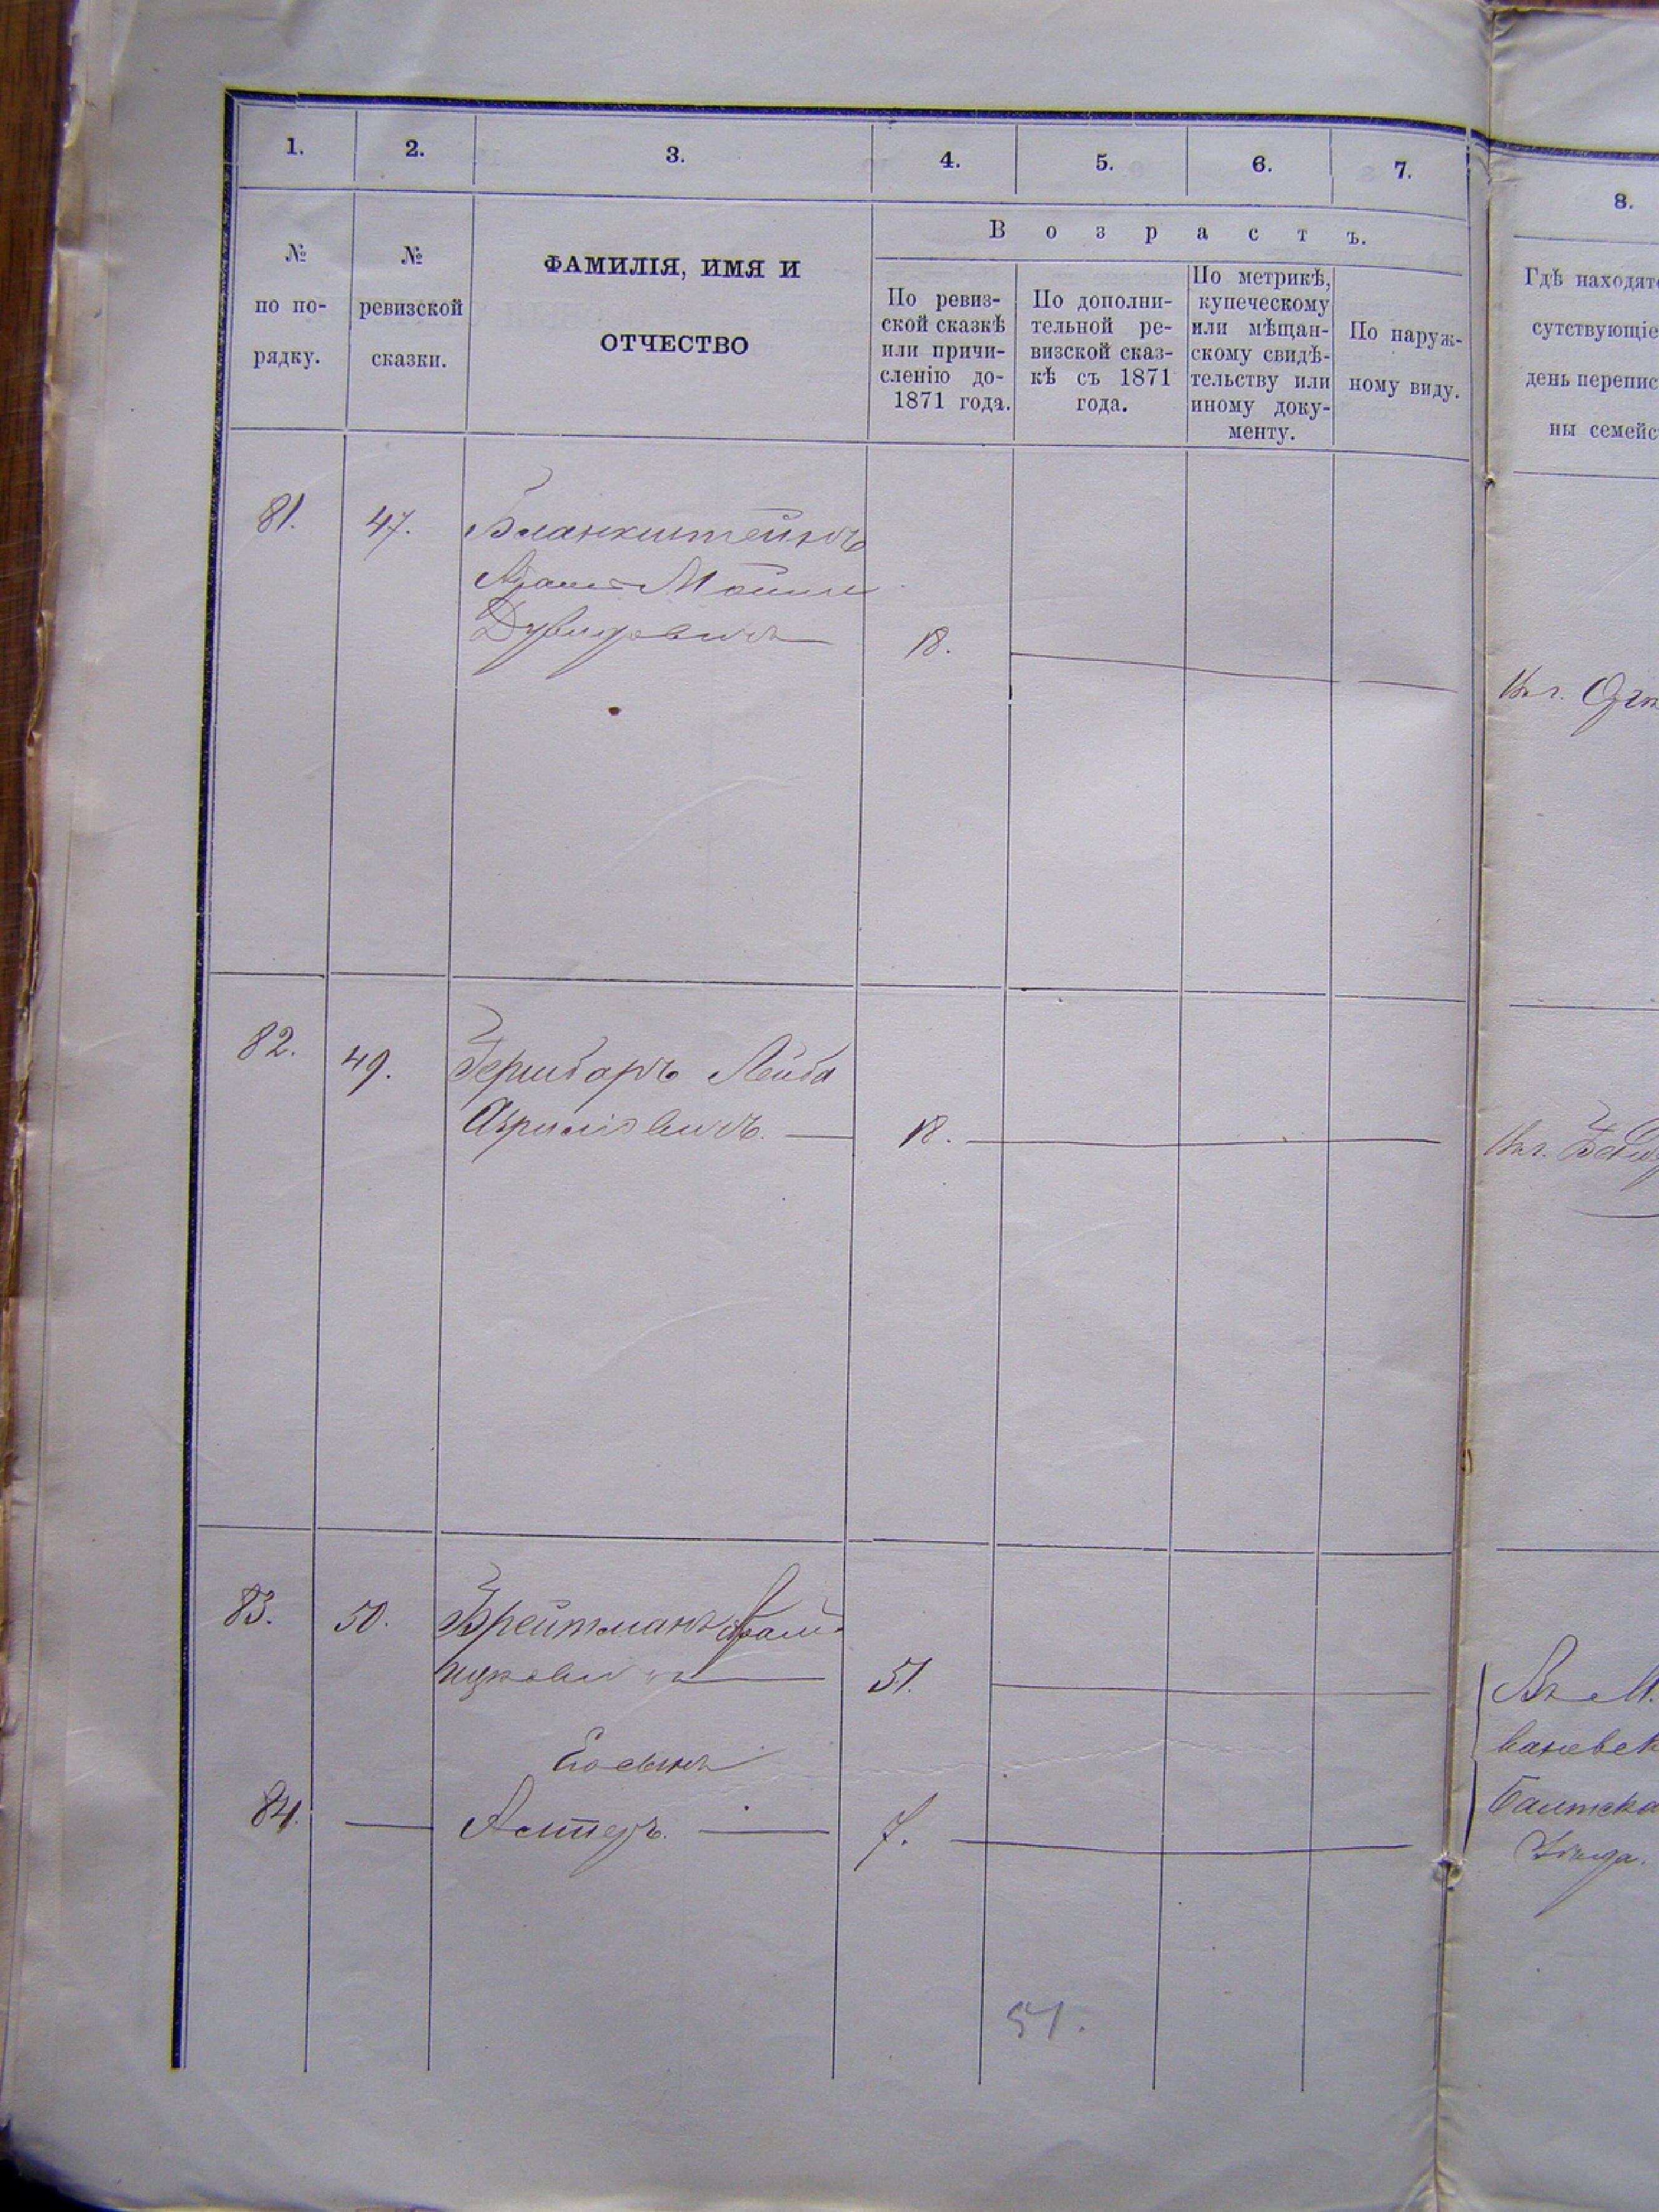 1.
2.
3.
4.
5.
6.
7.
8.
№
по по-
рядку.
№
ревизской
сказки.
ФАМИЛІЯ, ИМЯ И
ОТЧЕСТВО
Возрастъ.
По ревиз-
ской сказкѣ
или причи-
сленію до-
1871 года.
По дополни-
тельной ре-
визской сказ-
кѣ съ 1871
года.
По метрикѣ,
купеческому
или мѣщан-
скому свидѣ-
тельству или
иному доку-
менту.
По наруж-
ному виду.
Гдѣ находят
сутствующіе
день перепис
ны семейс
81. 47. Бланкштейнъ
Дувидовичъ 18.
82. 49. Гершбаръ Лейба
18.
83. 50. Брейтманъ
Ицковичъ 51.
Его сынъ
84. — Алтеръ. — 7.
Въ М.
Балтска
Уѣзда.
51.